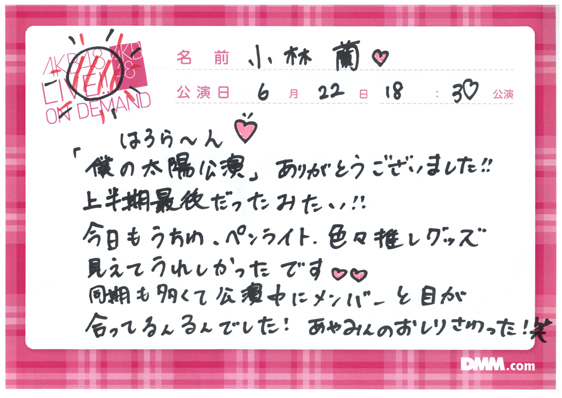 AKB48
LIVE!!
ON DEMAND
名前 小林 蘭
公演日 6月22日 18:30公演
はろら〜ん
「僕の太陽公演」ありがとうございました!!
上半期最後だったみたい!!
今日もうちわ、ペンライト、色々推しグッズ
見えてうれしかったです
同期も多くて公演中にメンバーと目が
合ってるんるんでした! あやみんのおしりさわった!笑
DMM.com